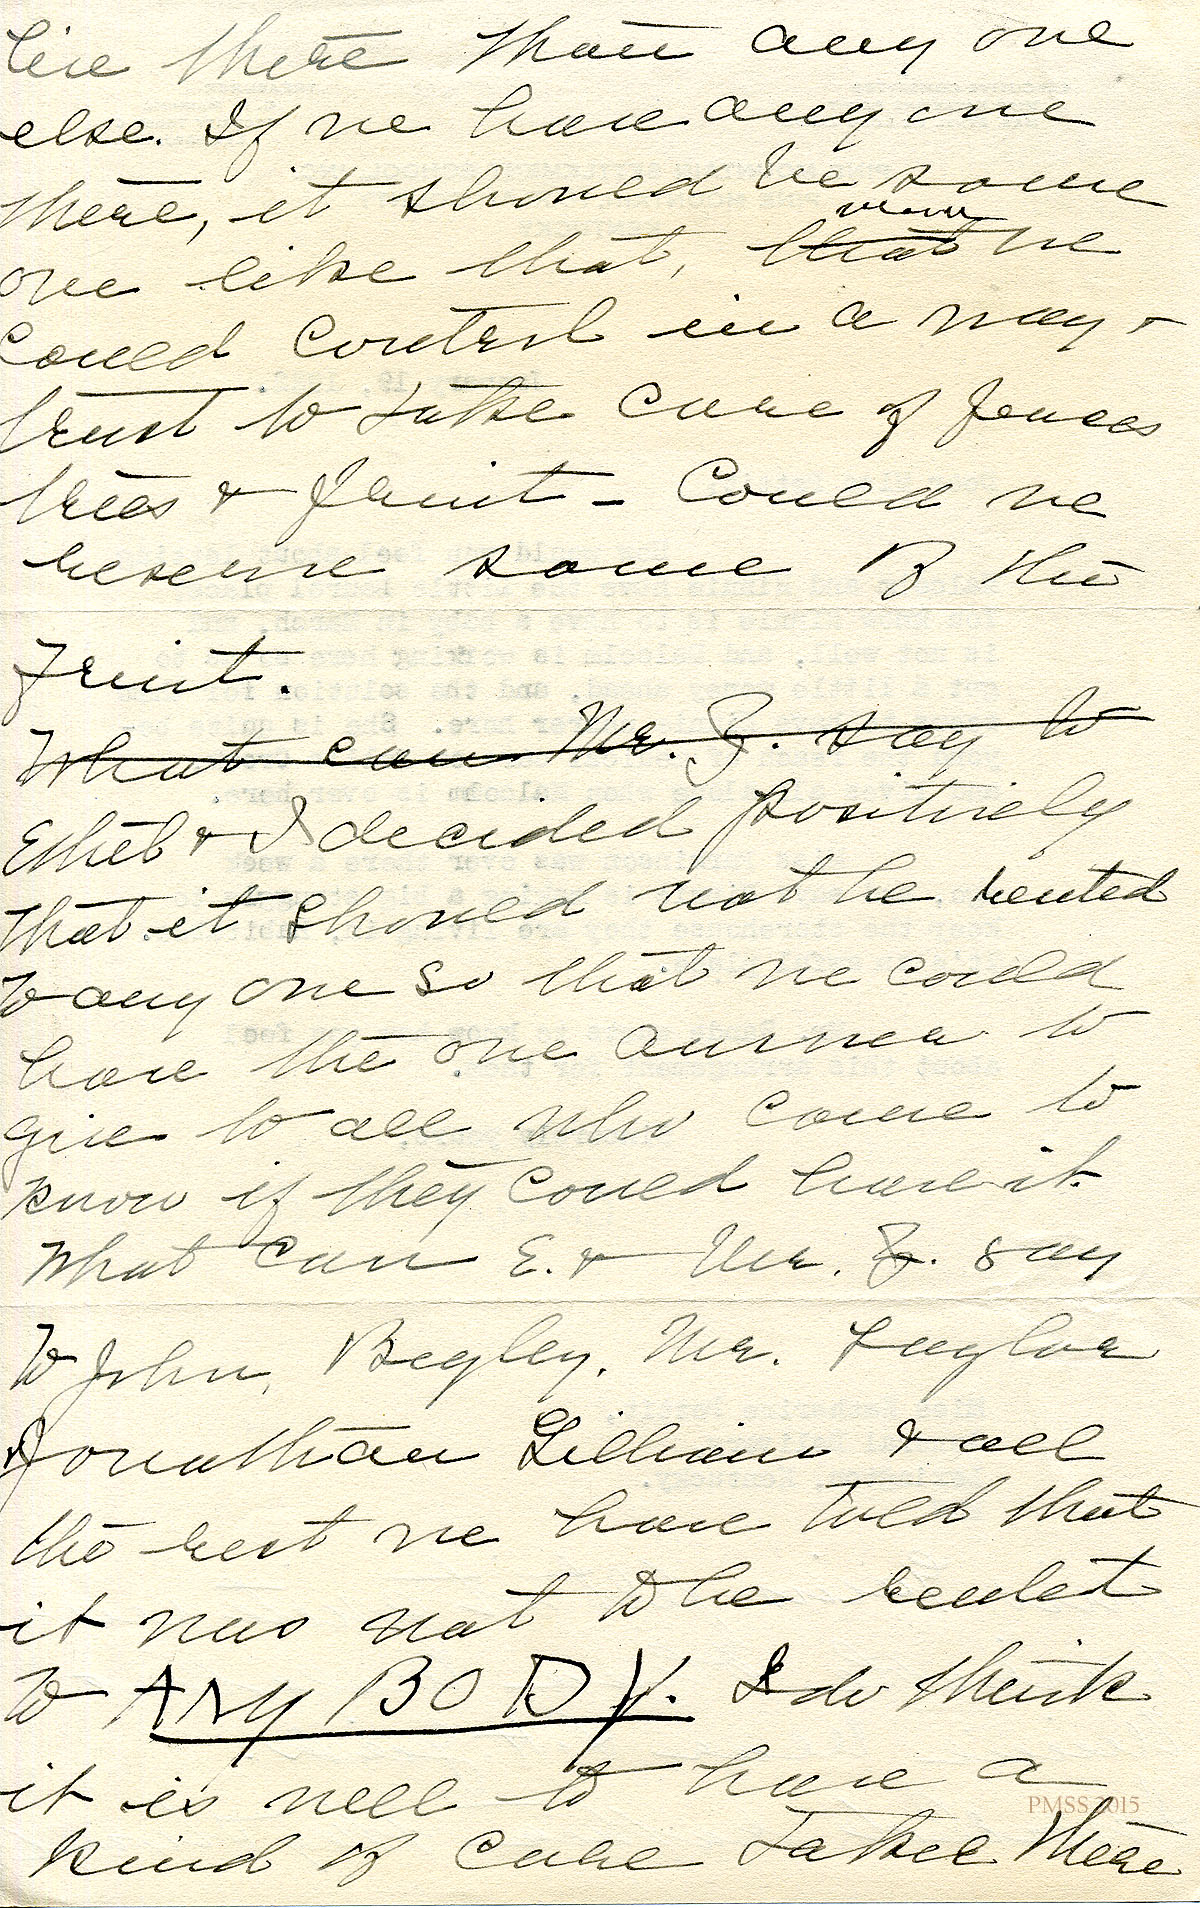 live there than any one
else. If we have any one
there, it should be some
one like that, that we
could control in a way &
trust to take care of fences
trees & fruit – Could we
reserve some of the
fruit.
What can Mr. Z. say to
Ethel & I decided positively
that it should not be rented
to any one so that we could
have the one answer to
give to all who come to
know if they could have it.
What can E. & Mr. Z. say
to John, Begley, Mr. Taylor
Jonathan Gilliam & all
the rest we have told that
it was not to be rented
to ANY BODY. I do think
it is well to have a
kind of care taker there
PMSS 2015